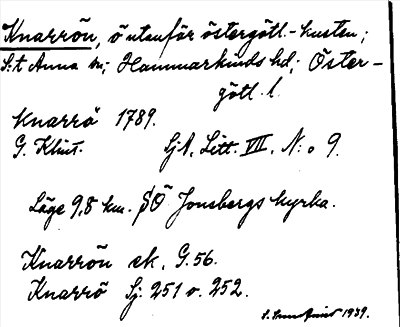 Knarrön, ö utanför östergötl.-kusten;
S:t Anna sn; Hammarkinds hd; Öster-
götl. l.
Knarrö 1789.
G. Klint. Sj.A. Litt. VII. N:o 9.
Läge 9,8 km. SÖ Jonsbergs kyrka.
Knarrön ek. G. 56.
Knarrö Sj. 251 o. 252.
1939.